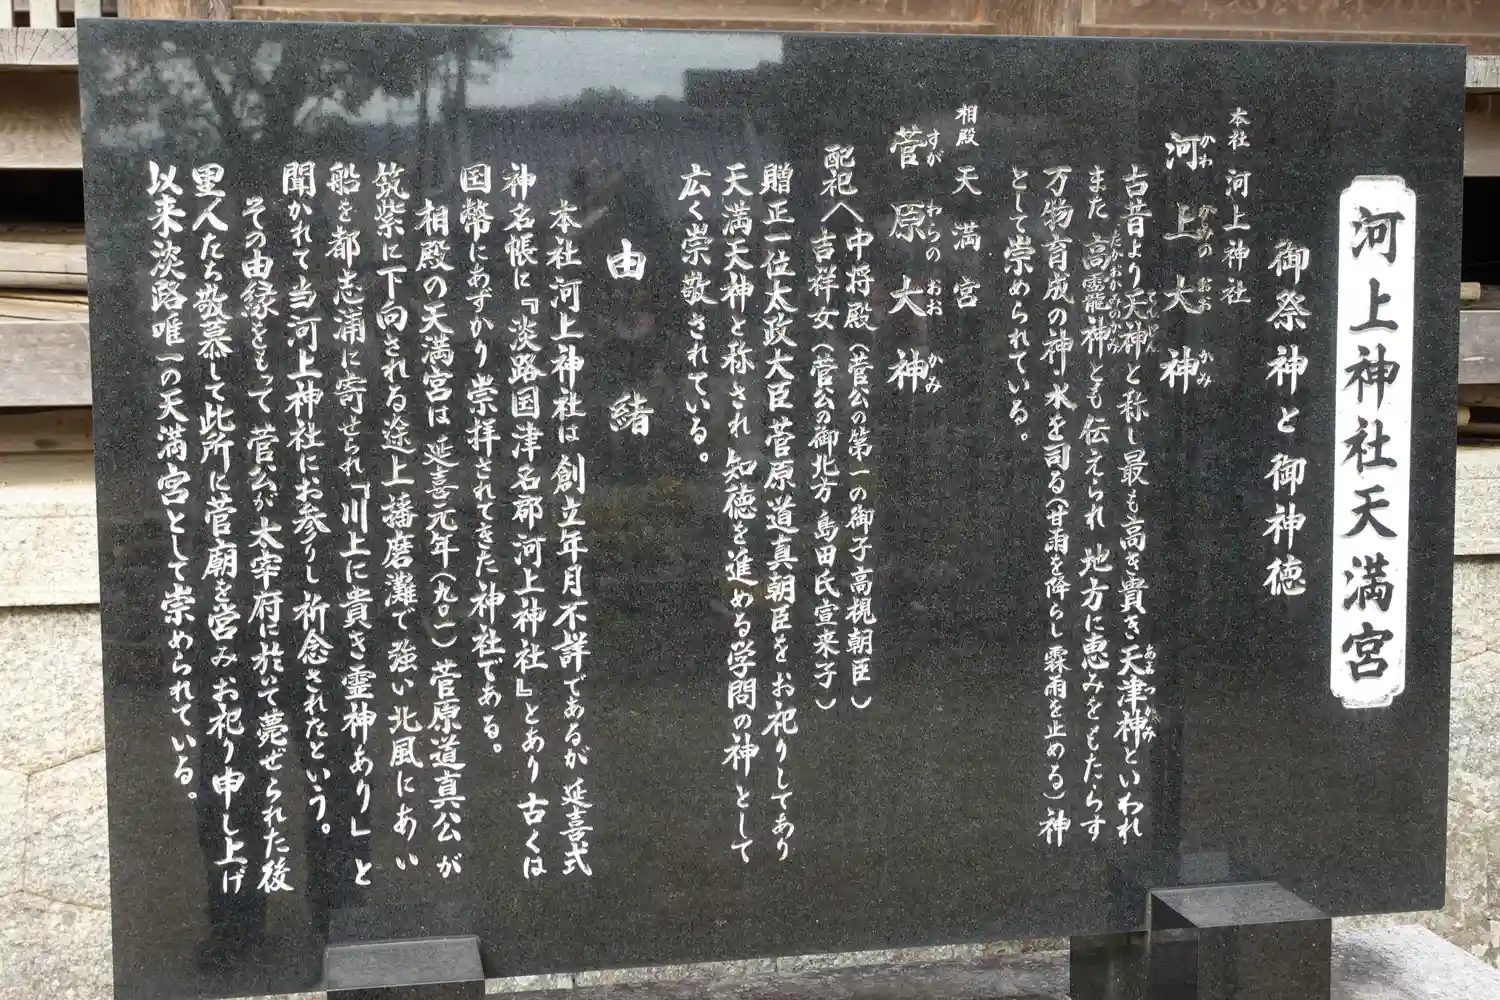 河上神社天満宮
御祭神と御神徳
本社 河上神社
河上大神
かわ かみの おお かみ
古昔より天神と称し最も高き貴き天津神といわれ
てんじん
あまつかみ
また 高龗神とも伝えられ 地方に恵みをもたらす
たかおかみのかみ
万物育成の神 水を司る(甘雨を降らし霖雨を止める)神
として崇められている。
相殿 天満宮
菅原大神
すが わらの おお かみ
配祀へ中将殿(菅公の第一の御子高視朝臣)
吉祥女(菅公の御北方 島田氏宣来子)
贈正一位太政大臣菅原道真朝臣をお祀りしてあり
天満天神と称され 知徳を進める学問の神として
広く崇敬されている。
由緒
本社河上神社は 創立年月不詳であるが 延喜式
神名帳に『淡路国津名郡河上神社』とあり古くは
国幣にあずかり崇拝されてきた神社である。
相殿の天満宮は 延喜元年(九〇一)菅原道真公が
筑紫に下向される途上播磨灘で強い北風にあい
船を都志浦に寄せられ『川上に貴き霊神あり」と
聞かれて当河上神社にお参りし祈念されたという。
その由縁をもって菅公が太宰府に於いて薨ぜられた後
里人たち敬慕して此所に菅廟を宮みお祀り申し上げ
以来淡路唯一の天満宮として崇められている。